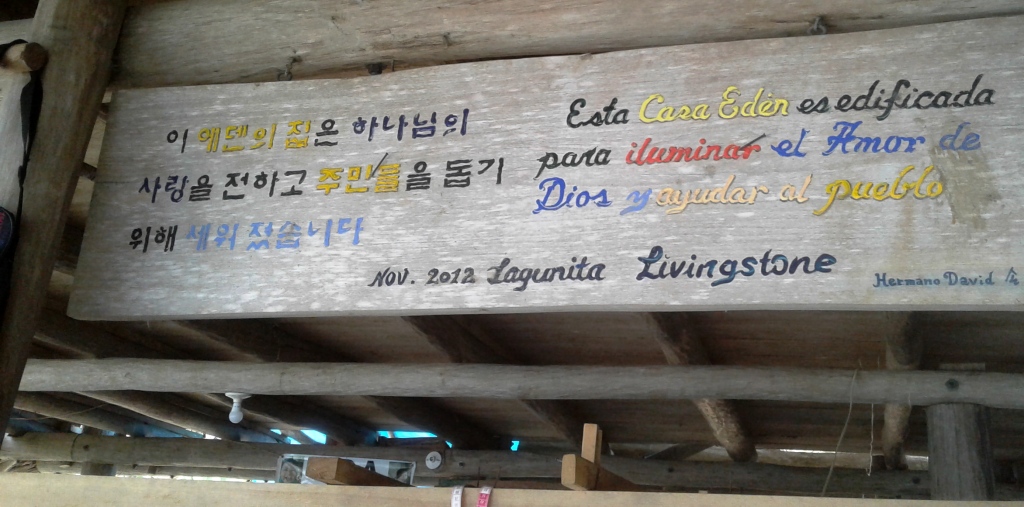 이 애덴의 집은 하나님의
사랑을 전하고 주민들을 돕기
위해 세워 졌습니다
Esta Casa Edén es edificada
para iluminar el Amor de
Dios y ayudar al pueblo
Nov. 2012 Lagunita Livingstone
Hermano David